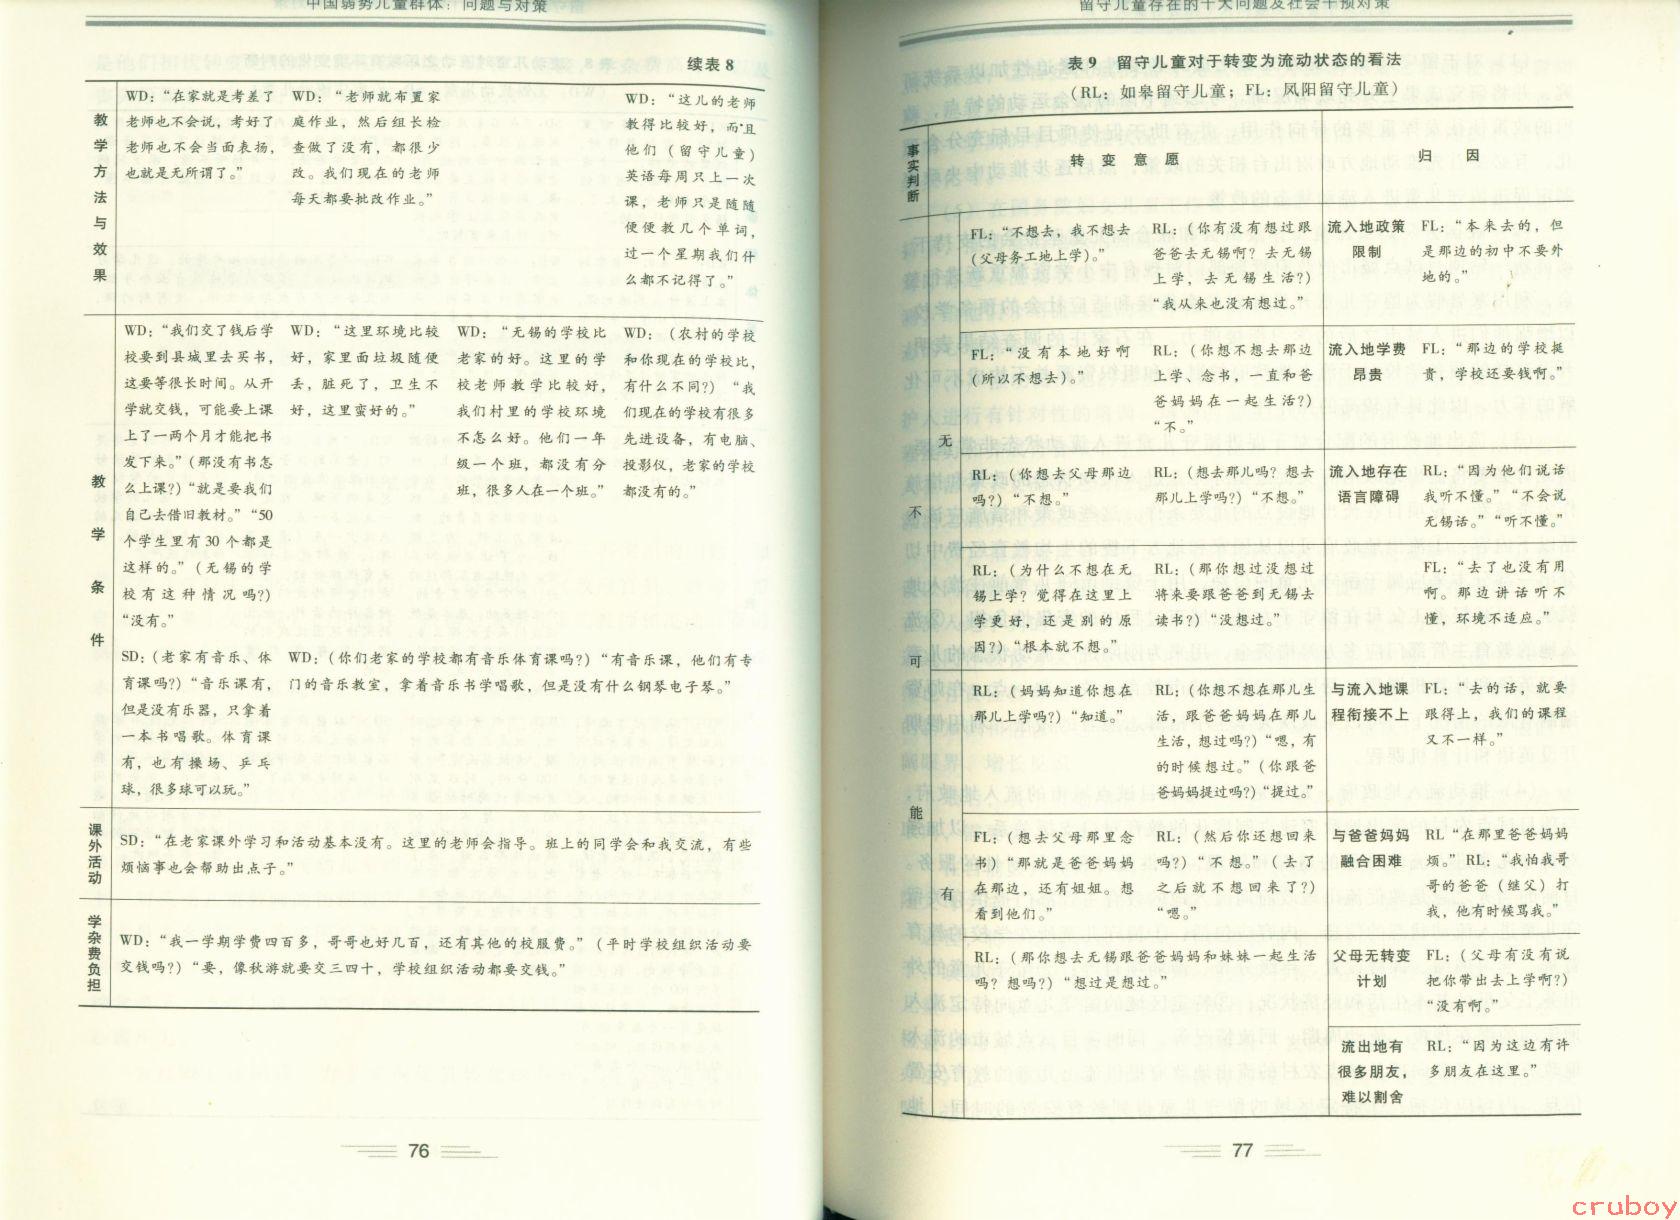 中国弱势儿童群体：问题与对策
续表 8
教学方法与效果
WD：“在家就是考差了
老师也不会说，考好了
老师也不会当面表扬，
也就是无所谓了。”
WD：“老师就布置家
庭作业，然后组长检
查做了没有，都很少
改。我们现在的老师
每天都要批改作业。”
WD：“这儿的老师
教得比较好，而且
他们（留守儿童）
英语每周只上一次
课，老师只是随随
便便教几个单词，
过一个星期我们什
么都不记得了。”
教学条件
WD：“我们交了钱后学
校要到县城里去买书，
这要等很长时间。从开
学就交钱，可能要上课
上了一两个月才能把书
发下来。”（那没有书怎
么上课？）“就是要我们
自己去借旧教材。”“50
个学生里有 30 个都是
这样的。”（无锡的学
校有这种情况吗？）
“没有。”
WD：“这里环境比较
好，家里面垃圾随便
丢，脏死了，卫生不
好，这里蛮好的。”
WD：“无锡的学校比
老家的好。这里的学
校老师教学比较好，
我们村里的学校环境
不怎么好。他们一年
级一个班，都没有分
班，很多人在一个班。”
WD：（农村的学校
和你现在的学校比，
有什么不同？）“我
们现在的学校有很多
先进设备，有电脑、
投影仪，老家的学校
都没有的。”
SD：（老家有音乐、体
育课吗？）“音乐课有，
但是没有乐器，只拿着
一本书唱歌。体育课
有，也有操场、乒乓
球，很多球可以玩。”
WD：（你们老家的学校都有音乐体育课吗？）“有音乐课，他们有专
门的音乐教室，拿着音乐书学唱歌，但是没有什么钢琴电子琴。”
课外活动
SD：“在老家课外学习和活动基本没有。这里的老师会指导。班上的同学会和我交流，有些
烦恼事也会帮助出点子。”
学杂费负担
WD：“我一学期学费四百多，哥哥也好几百，还有其他的校服费。”（平时学校组织活动要
交钱吗？）“要，像秋游就要交三四十，学校组织活动都要交钱。”
76
留守儿童存在的十大问题及社会干预对策
表 9 留守儿童对于转变为流动状态的看法
（RL：如皋留守儿童；FL：凤阳留守儿童）
事实判断
转变意愿
归因
不可能
无
FL：“不想去，我不想去
（父母务工地上学）。”
RL：（你有没有想过跟
爸爸去无锡啊？去无锡
上学，去无锡生活？）
“我从来也没有想过。”
流入地政策
限制
FL：“本来去的，但
是那边的初中不要外
地的。”
FL：“没有本地好啊
（所以不想去）。”
RL：（你想不想去那边
上学、念书，一直和爸
爸妈妈在一起生活？）
“不。”
流入地学费
昂贵
FL：“那边的学校挺
贵，学校还要钱啊。”
RL：（你想去父母那边
吗？）“不想。”
RL：（想去那儿吗？想去
那儿上学吗？）“不想。”
流入地存在
语言障碍
RL：“因为他们说话
我听不懂。”“不会说
无锡话。”“听不懂。”
RL：（为什么不想在无
锡上学？觉得在这里上
学更好，还是别的原
因？）“根本就不想。”
RL：（那你想过没想过
将来要跟爸爸到无锡去
读书？）“没想过。”
FL：“去了也没有用
啊。那边讲话听不
懂，环境不适应。”
有
RL：（妈妈知道你想在
那儿上学吗？）“知道。”
RL：（你想不想在那儿生
活，跟爸爸妈妈在那儿
生活，想过吗？）“嗯，有
的时候想过。”（你跟爸
爸妈妈提过吗？）“提过。”
与流入地课
程衔接不上
FL：“去的话，就要
跟得上，我们的课程
又不一样。”
FL：（想去父母那里念
书）“那就是爸爸妈妈
在那边，还有姐姐。想
看到他们。”
RL：（然后你还想回来
吗？）“不想。”（去了
之后就不想回来了？）
“嗯。”
与爸爸妈妈
融合困难
RL“在那里爸爸妈妈
烦。”RL：“我怕我哥
哥的爸爸（继父）打
我，他有时候骂我。”
RL：（那你想去无锡跟爸爸妈妈和妹妹一起生活
吗？想吗？）“想过是想过。”
父母无转变
计划
FL：（父母有没有说
把你带出去上学啊？）
“没有啊。”
流出地有
很多朋友，
难以割舍
RL：“因为这边有许
多朋友在这里。”
77
cruboy